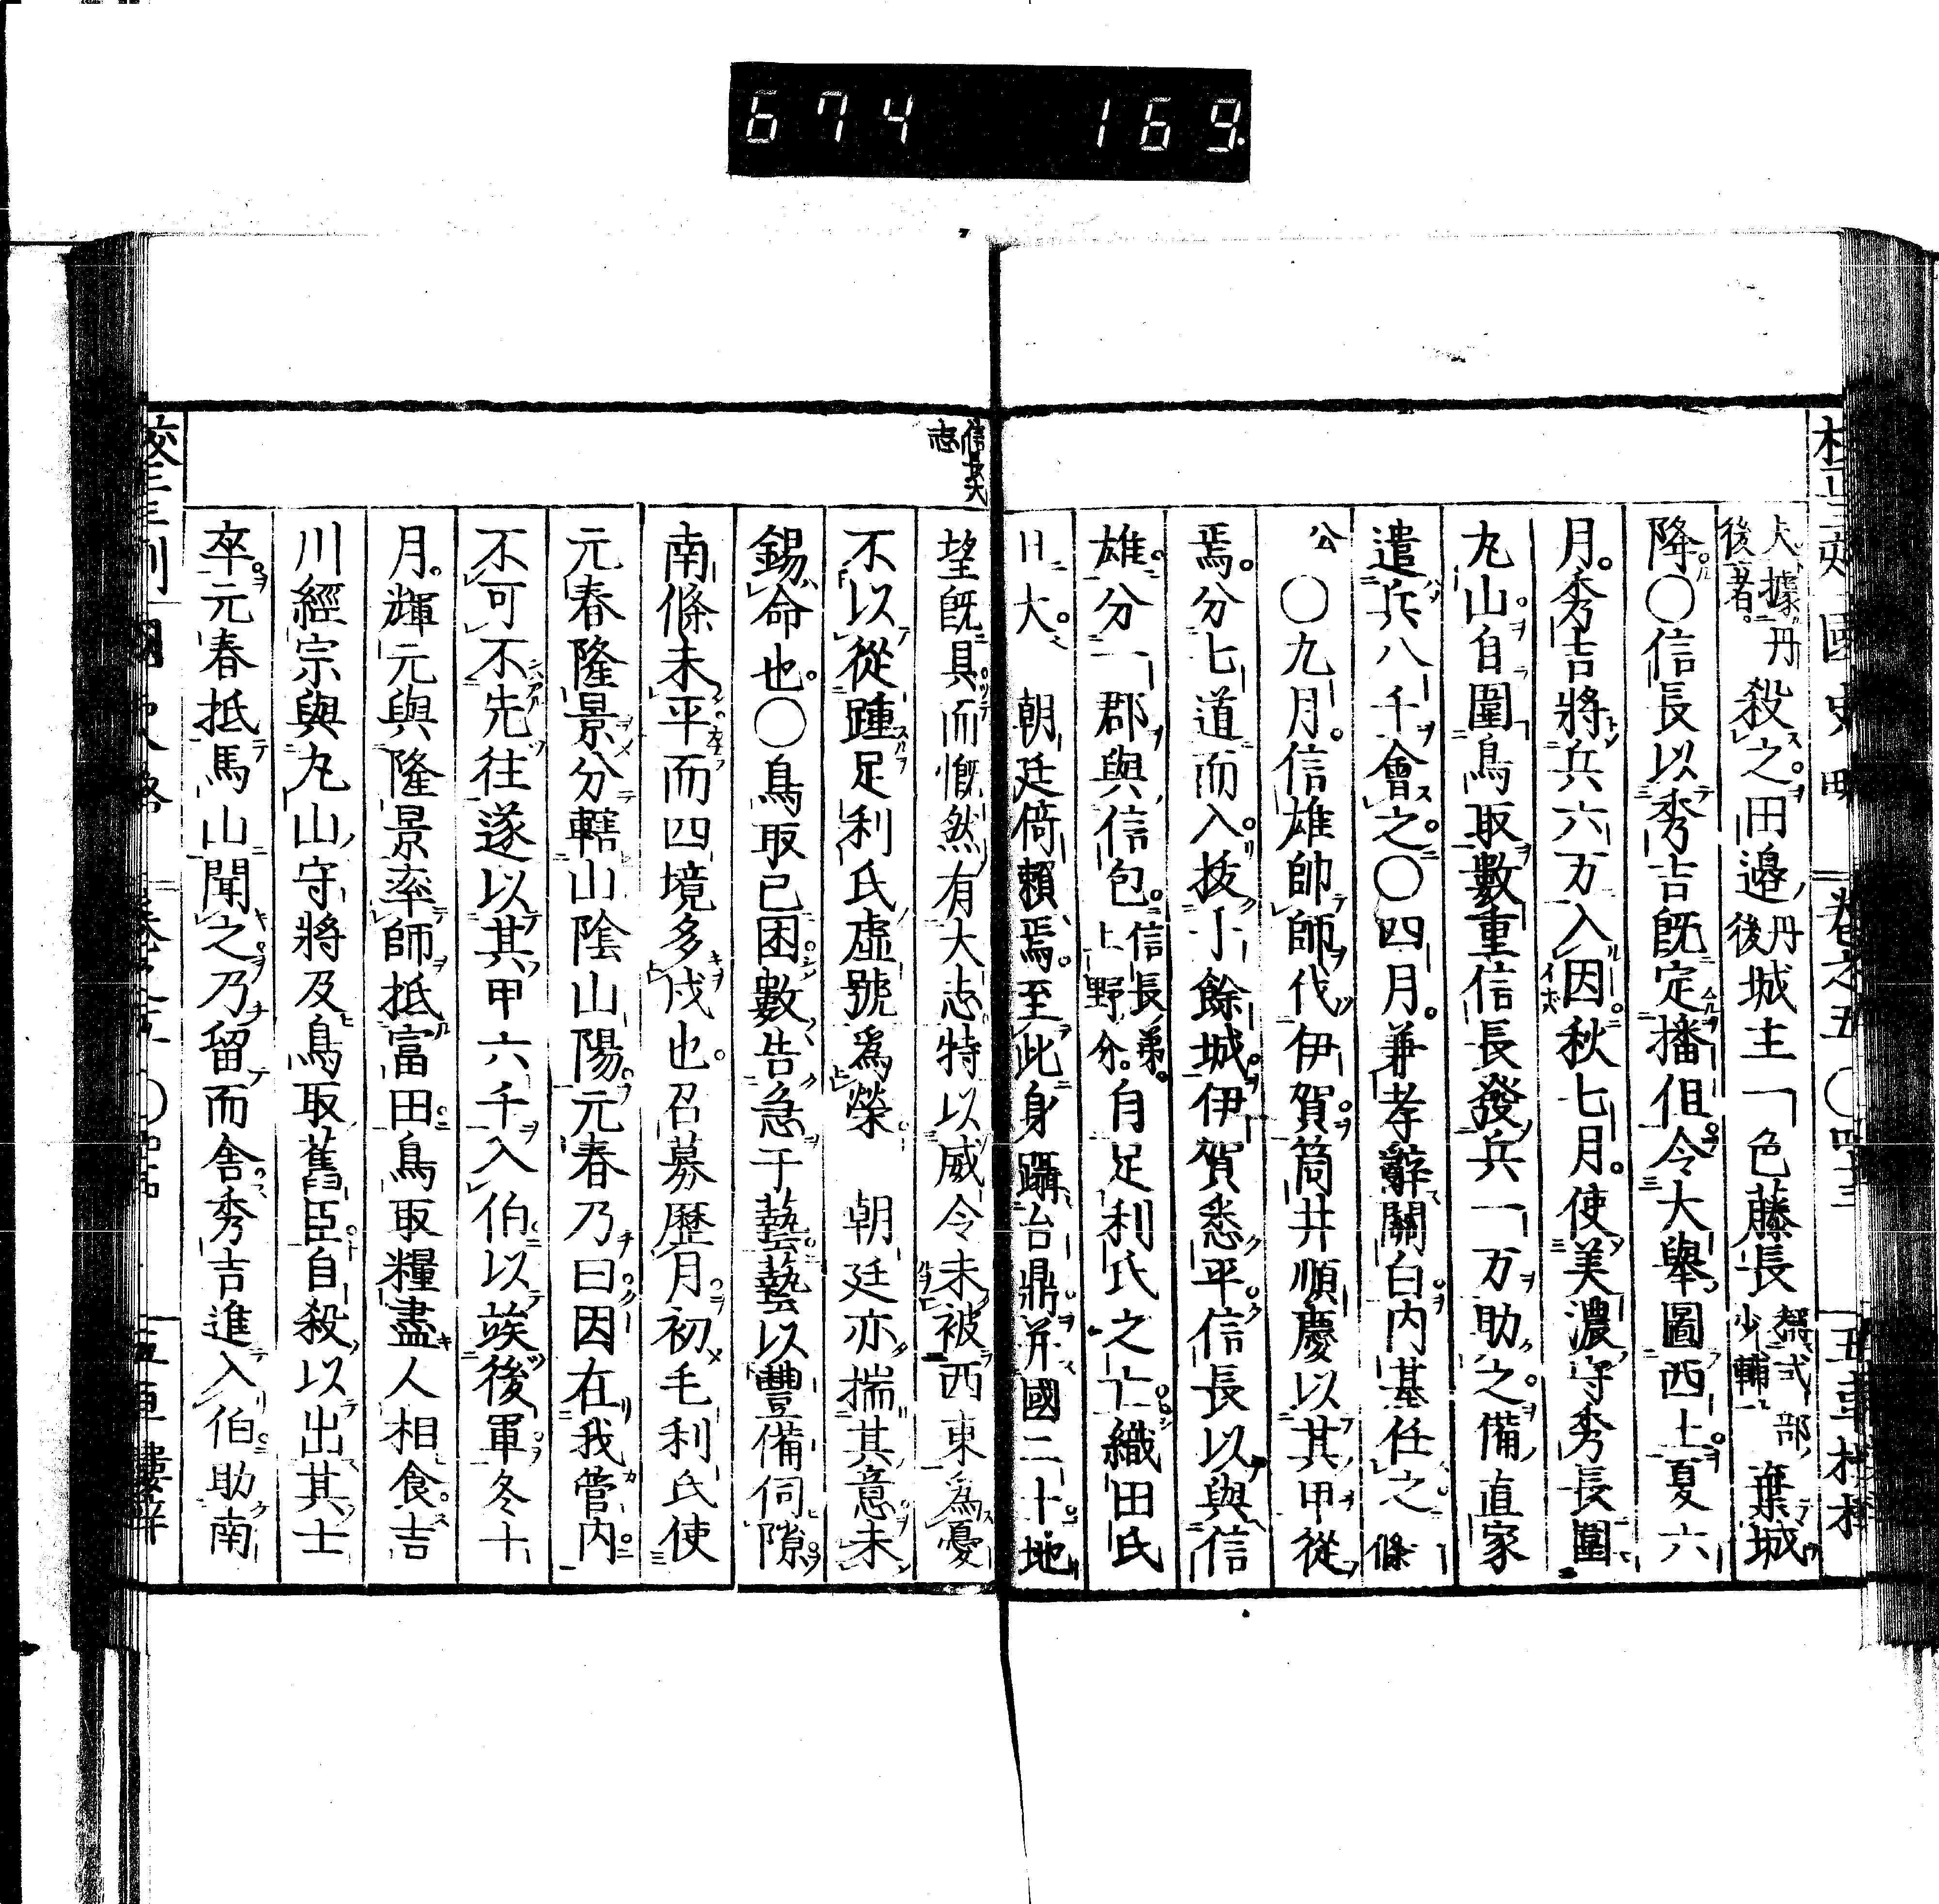 674 169
大據丹後者。殺之田邉丹後城主一色藤長式部少輔棄城
降○信長以秀吉既定播但令大擧圖西土夏六
月秀吉將兵六万入因秋七月使美濃守秀長圍
丸山自圍鳥取數重信長發兵一万助之備直家
遣兵八千會之○四月兼孝辭關白内基任之條
公○九月信雄帥師伐伊賀筒井順慶以其甲從
焉分七道而入拔丁餘城伊賀悉平信長以與信
雄分一郡與信包信長弟上野分。自足利氏之亡織田氏
日大 朝廷倚賴焉至此身躡台鼎并國二十地
信長大志
望既具而慨然有大志特以威令未被西東爲憂
不以從踵足利氏虛號爲榮 朝廷亦揣其意未
錫命也○鳥取已困數告急于藝藝以豐備伺隙
南條未平而四境多戍也召募歷月初毛利氏使
元春隆景分轄山陰山陽元春乃曰因在我管内
不可不先往遂以其甲六千入伯以竢後軍冬十
月輝元與隆景率師抵富田鳥取糧盡人相食吉
川經宗與丸山守將及鳥取舊臣自殺以出其士
卒元春抵馬山聞之乃留而舍秀吉進入伯助南